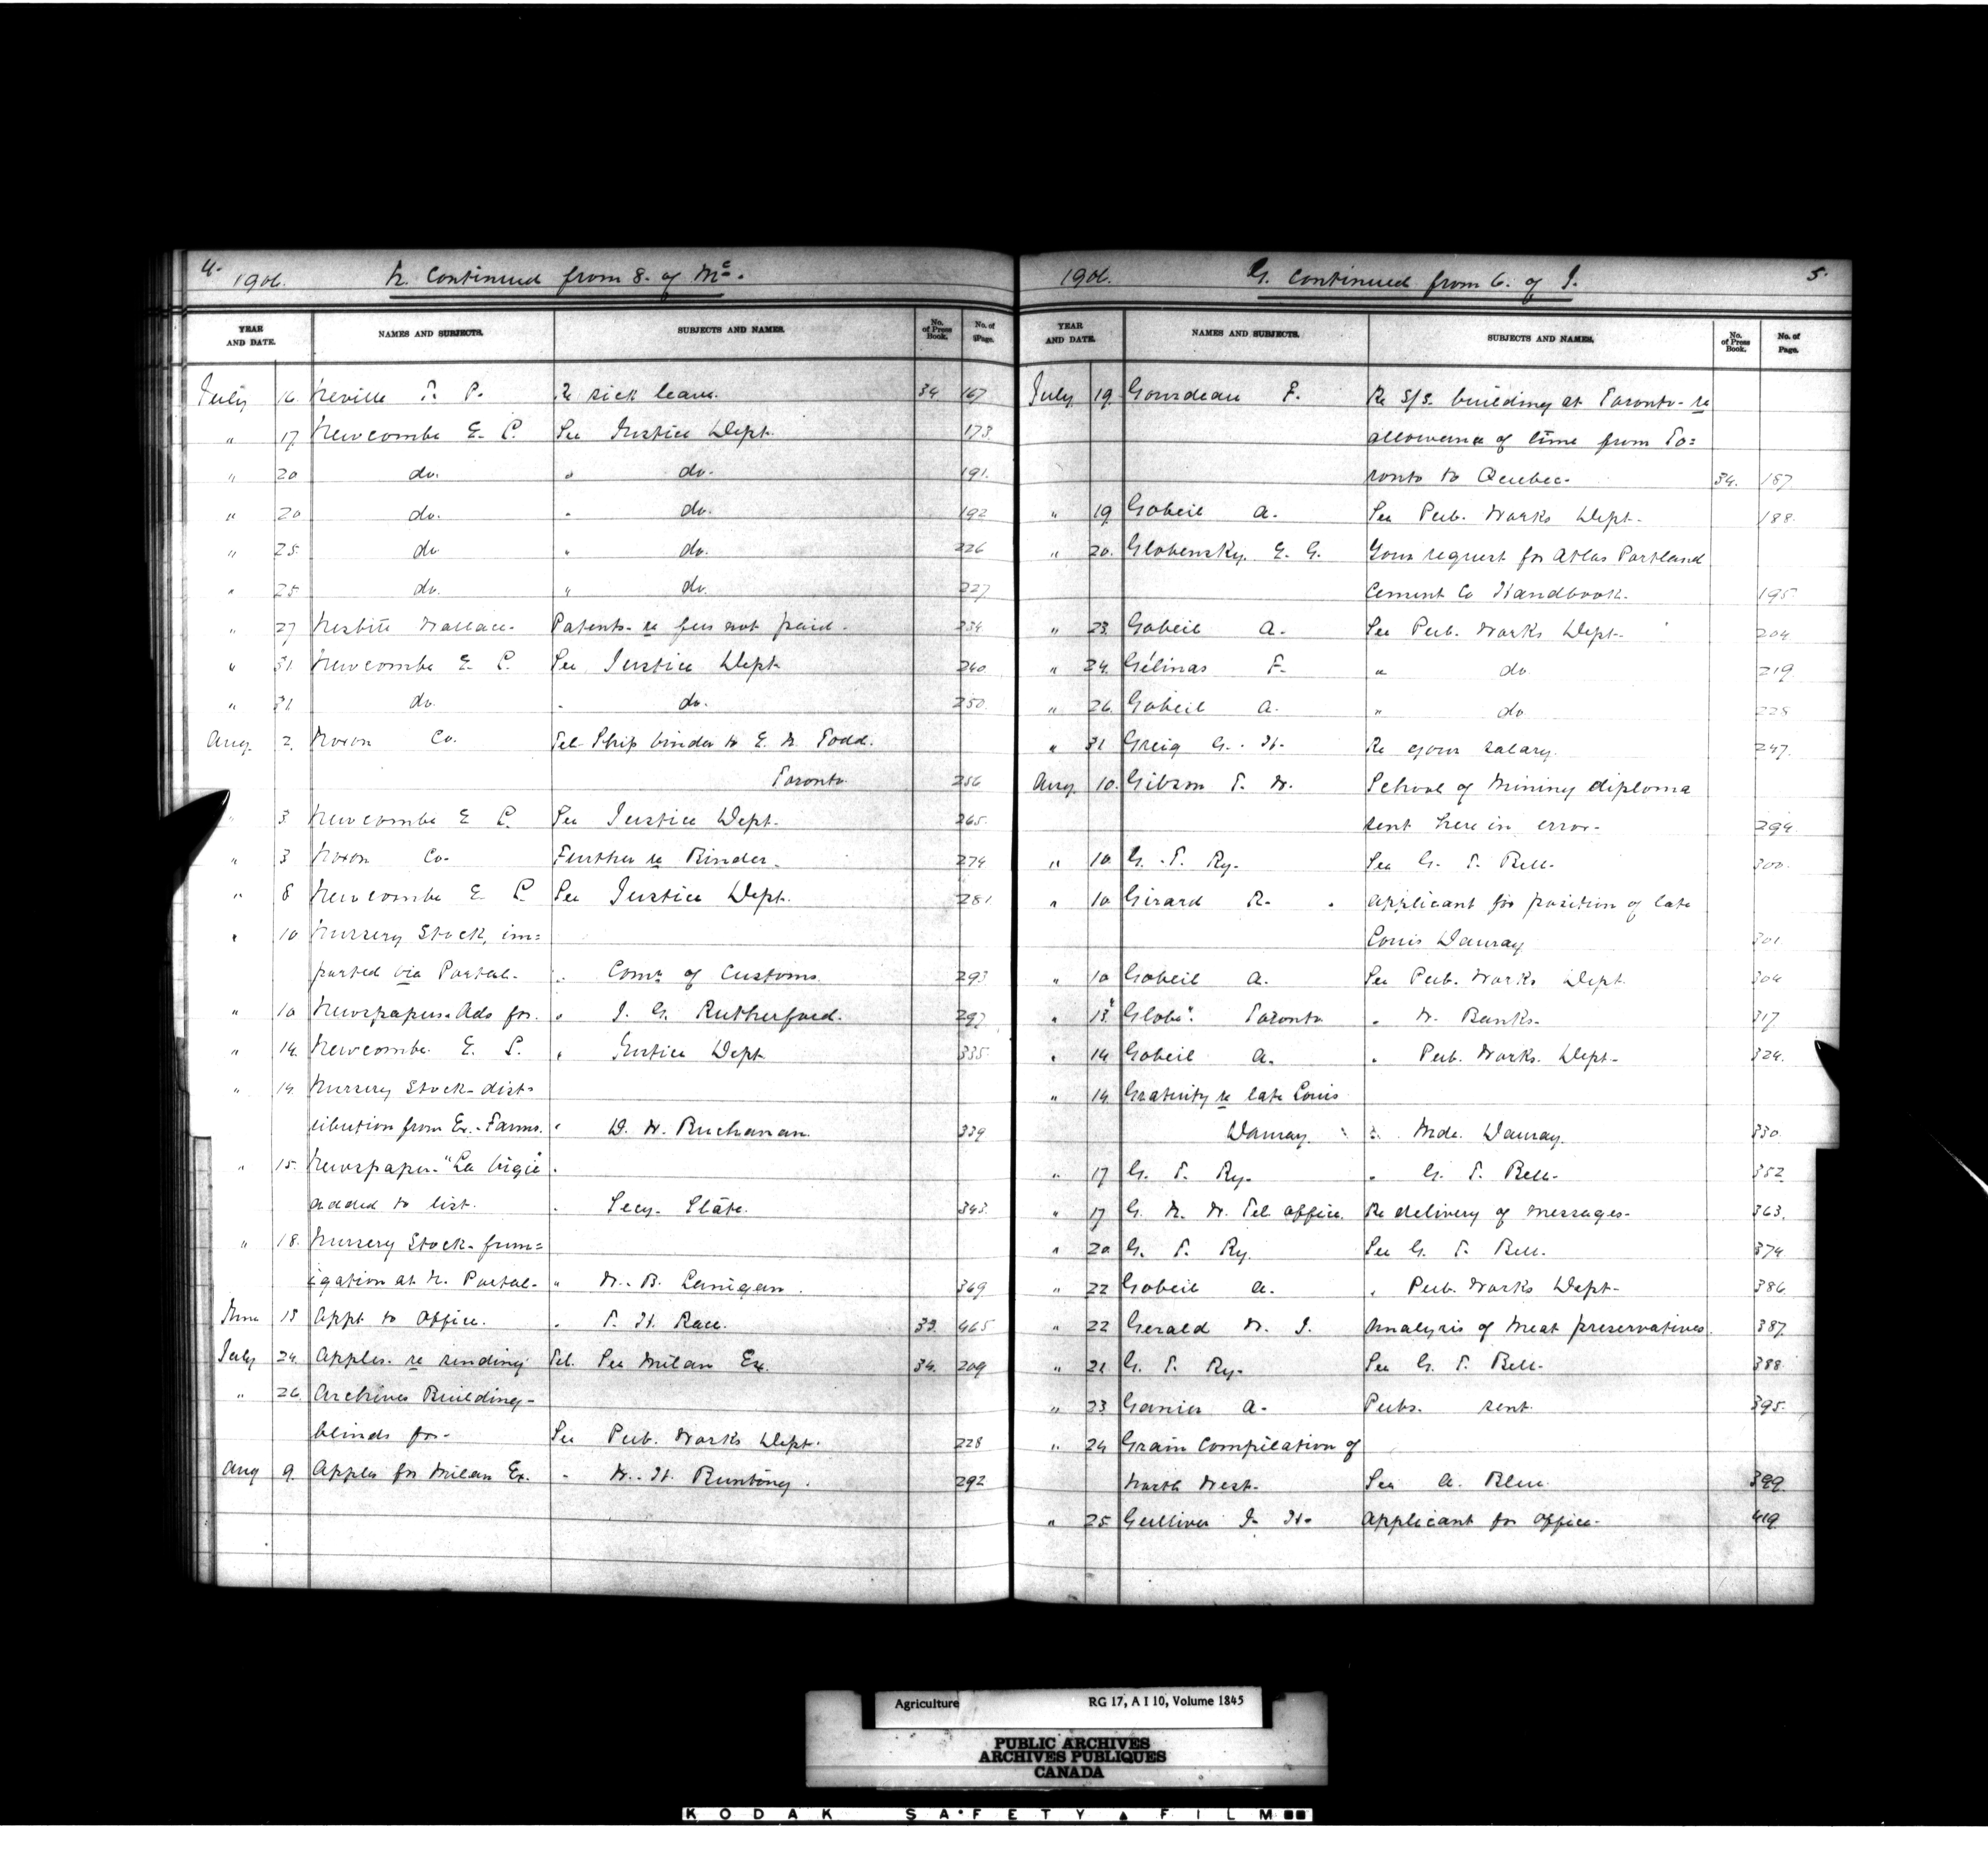 4. 1906. N. Continued from 8. of Mc.
YEAR AND DATE. NAMES AND SUBJECTS. SUBJECTS AND NAMES. No. of Press Book. No. of Page.
July 16 Neville T. P. Re sick leave. 34 167
" 17 Newcombe E. L. See Justice Dept. 173
" 20 do. " do. 191.
" 20 do. " do. 192
" 25 do. " do. 226
" 25 do. " do. 227
" 27 Nesbitt Wallace. Patents - re fees not paid. 234
" 31 Newcombe E. L. See Justice Dept 240
" 31 do. " do. 250
Aug. 2. Noxon Co. Tel. Ship binder to E. N. Todd.
Toronto. 256
" 3 Newcombe E L. See Justice Dept. 265.
" 3 Noxon Co. Further re Binder. 274
" 8 Newcombe E L. See Justice Dept. 281
" 10 Nursery Stock, im=
ported via Portal. " Comr. of Customs. 293
" 10 Newspapers. Ads for. " J. G. Rutherford. 297
" 14. Newcombe. E. L. " Justice Dept 335
" 14. Nursery Stock - dist=
ribution from Ex. Farms. " D. W. Buchanan. 339
" 15. Newspaper. "La Vigie"
added to list. " Secy. State. 343.
" 18. Nursery Stock - fum=
igation at N. Portal. " W. B. Lanigan. 369
June 15 Appt to Office. " T. H. Race. 33. 465
July 24. Apples. re sending Tel. See Milan Ex. 34. 209
" 26. Archives Building -
blinds for - See Pub. Works Dept. 228
Aug 9. Apples for Milan Ex. " W. H. Bunting. 292
1906. G. Continued from 6. of J. 5.
YEAR AND DATE. NAMES AND SUBJECTS. SUBJECTS AND NAMES. No. of Press Book. No. of Page.
July 19. Gourdeau F. Re S/S. building at Toronto - re
allowance of time from To=
ronto to Quebec. 34. 187
" 19 Gobeil A. See Pub. Works Dept. 188.
" 20. Globensky. E. G. Your request for Atlas Portland
Cement Co Handbook. 195
" 23. Gobeil A. See Pub. Works Dept. 204
" 24. Gélinas F. " do 219
" 26. Gobeil A. " do 228
" 31 Greig G. H. Re your salary. 247.
Aug. 10. Gibson T. W. School of Mining diploma
sent here in error. 294.
" 10 G. T. Ry. See G. T. Bell. 300.
" 10 Girard R. Applicant for position of late
Louis Dauray 301
" 10 Gobeil A. See Pub. Works Dept. 304
" 13 "Globe". Toronto " W. Banks. 317
" 14 Gobeil A. " Pub. Works. Dept. 324.
" 14 Gratuity re late Louis
Dauray. " Mde. Dauray. 330.
" 17 G. T. Ry. " G. T. Bell. 352
" 17 G. N. W. Tel. Office. Re delivery of messages. 363.
" 20 G. T. Ry. See G. T. Bell. 374
" 22 Gobeil A. " Pub. Works Dept. 386.
" 22 Gerald W. J. Analysis of Meat preservatives. 387
" 22 G. T. Ry. See G. T. Bell. 388
" 23 A. Pubs. sent. 395.
" 24 Grain Compilation of
North West. See A. Blue. 399.
" 25 Gulliver J. H. Applicant for Office. 419
Agriculture RG 17, A I 10, Volume 1845
PUBLIC ARCHIVES
ARCHIVES PUBLIQUES
CANADA
KODAK SAFETY FILM